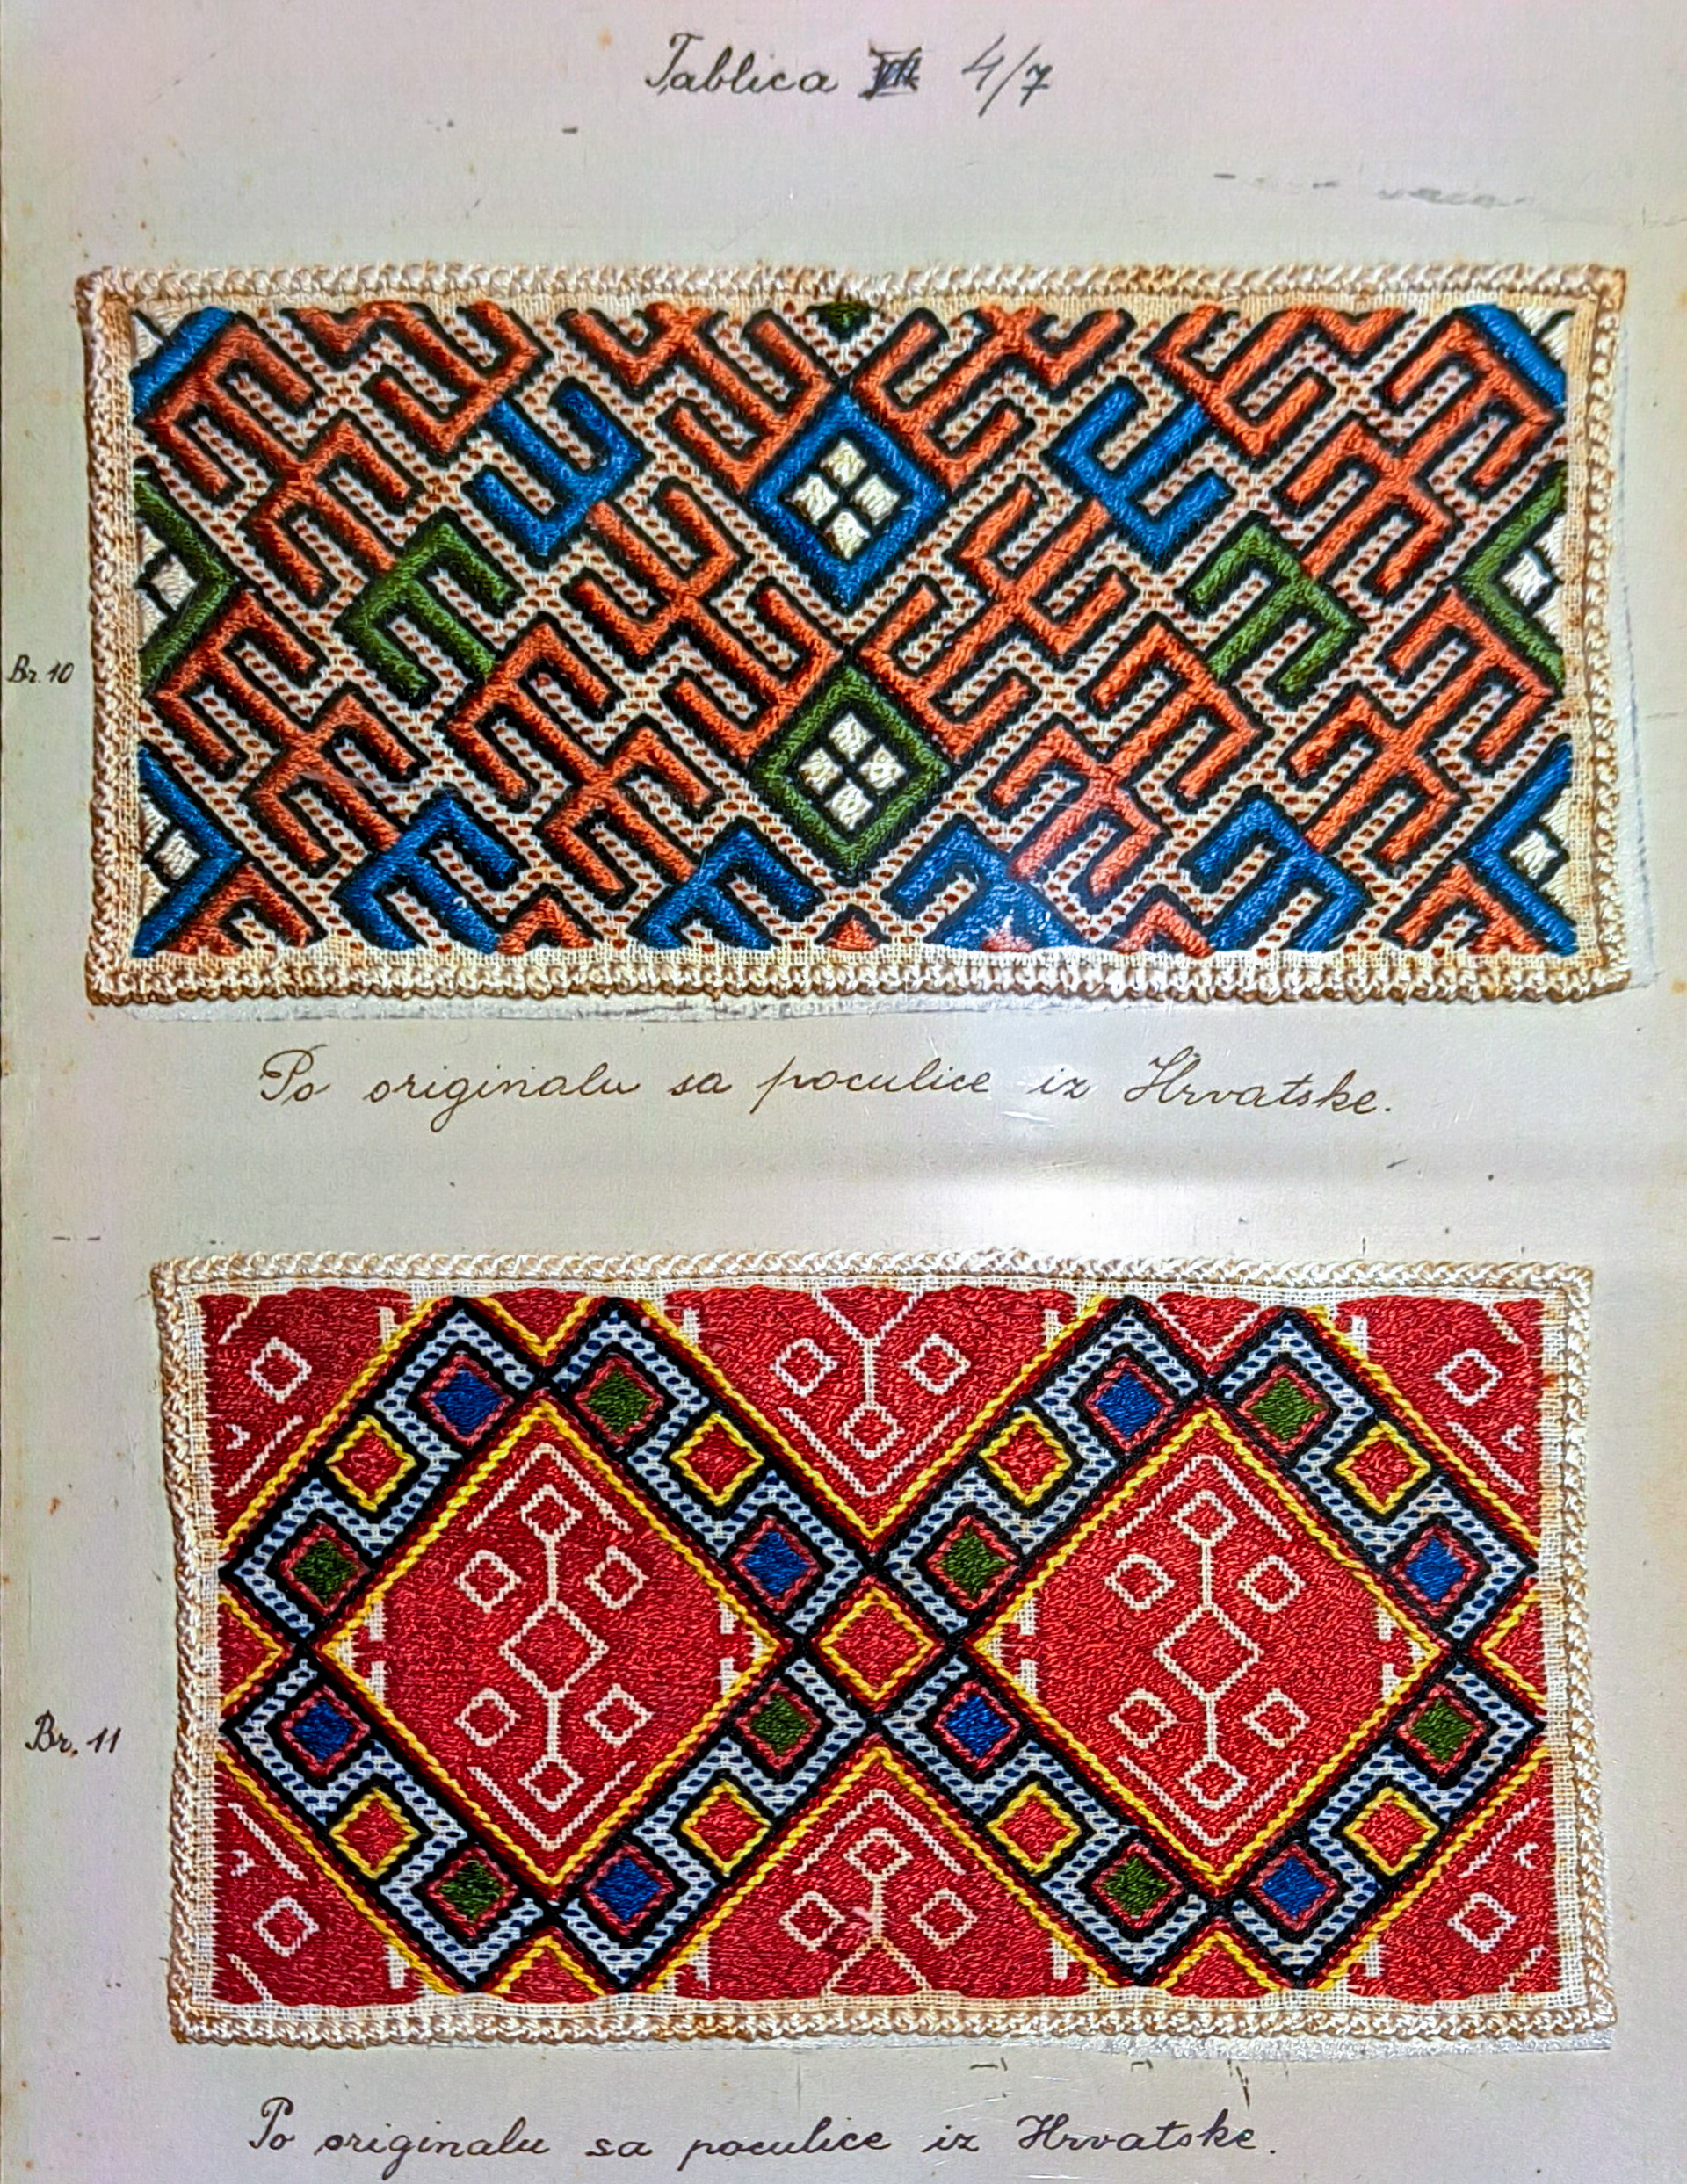 Tablica 4/7
Br. 10
Po originalu sa poculice iz Hrvatske.
Br. 11
Po originalu sa poculice iz Hrvatske.